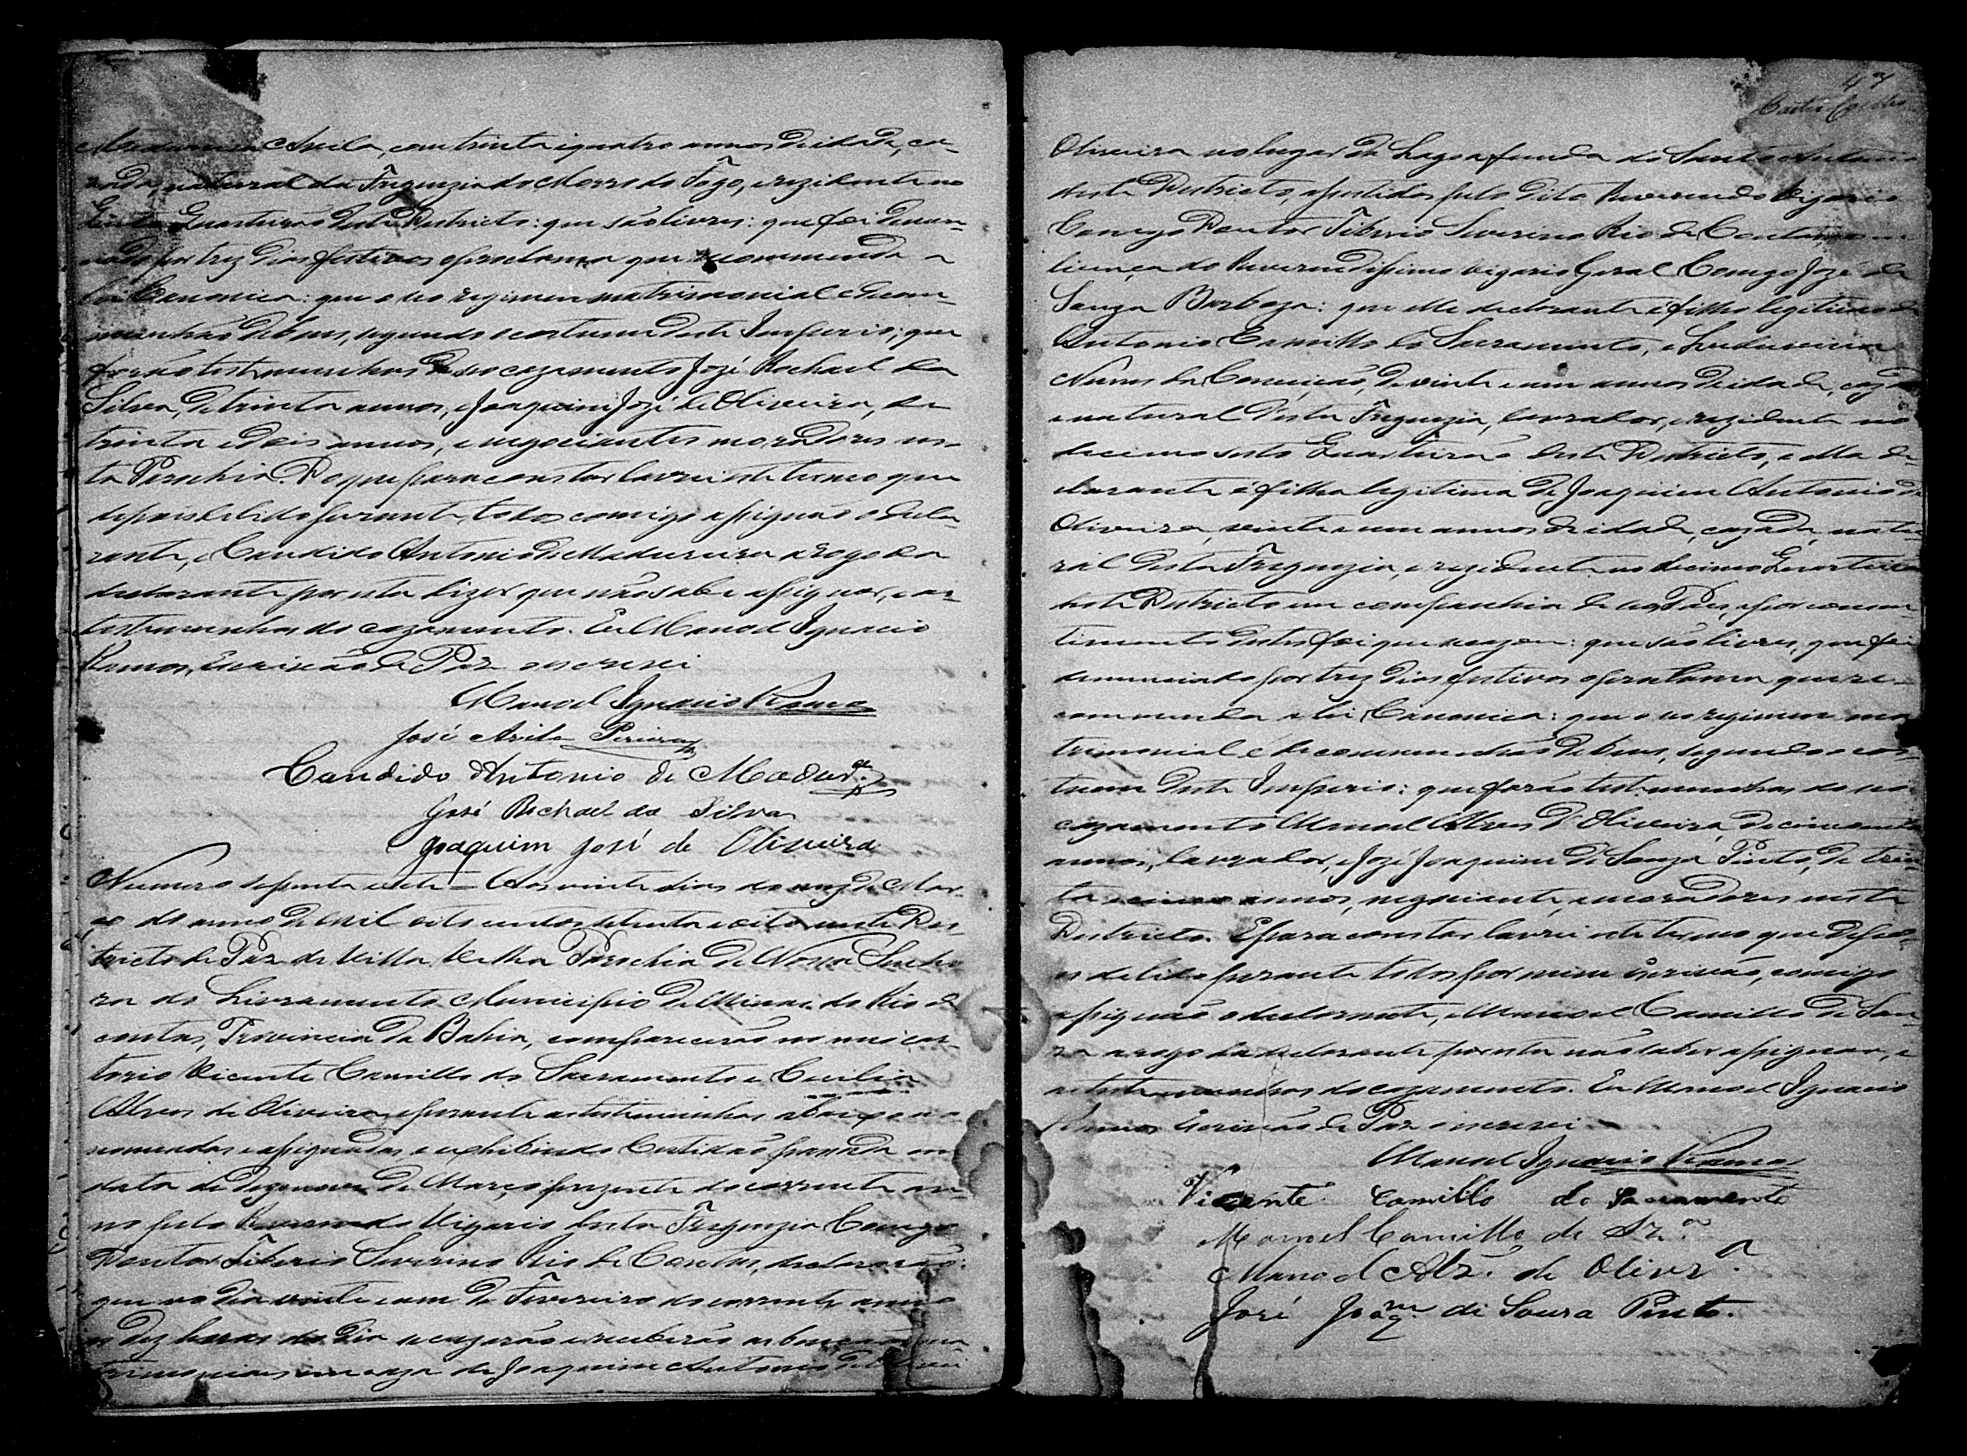 Avila, com trinta e quatro annos de idade, ca-
zada, natural da Freguezia do Morro do Fogo, e rezidente no
Quarteirão deste Districto: que são livres: que foi denun-
ciado por trez dias festivos o proclama que recommenda a
Lei Canonica: que o seo regimen matrimonial é de com-
munhão de bens, segundo o costume deste Imperio; que
forão testemunhas de seo cazamento José Rachael da
Silva, de trinta annos, e Joaquim José de Oliveira, de
trinta e dois annos, e negociantes moradores nes-
ta Parochia. Do que para constar lavrei este termo que
depois de lido perante todos comigo assignão o decla-
rante, e Candido Antonio de Madureira a rogo da
declarante por esta dizer que não sabe assignar, e as
testemunhas do cazamento. Eu Manoel Ignacio
Ramos, Escrivão de Paz o escrevi
Manoel Ignacio Ramos
José Avila Pereira
Candido Antonio de Madurª
José Rachael da Silva
Joaquim José de Oliveira
Numero setenta e sete — Aos vinte dias do mez de Mar-
ço do anno de mil oito centos setenta e oito neste Dis-
tricto de Paz de Villa Velha Parochia de Nossa Senho
ra do Livramento Municipio de Minas do Rio de
contas, Provincia da Bahia, comparecerão no meo car-
torio Vicente Camillo do Sacramento e Cecilia
Alves de Oliveira e perante as testemunhas abaixo
nomeadas e assignadas e exhibindo Certidão passada em
data de dezenove de Março prezente do corrente an-
no pelo Reverendo Vigario desta Freguezia Conego
Doutor Tiberio Severino Rio de Contas, declararão:
que no dia vinte e um de Fevereiro do corrente anno
as dez horas do dia se cazarão e receberão as bençãos ma
trimoniaes em caza de Joaquim Antonio de
47
Oliveira no lugar da Lagoa funda de Santo Antonio
deste Districto, assistidos pelo dito Reverendo Vigario
Conego Doutor Tiberio Severino Rio de Contas
licença do Reverendissimo Vigario Geral Conego José de
Souza Barboza: que elle declarante é filho legitimo de
Antonio Camillo do Sacramento, e
Nunes da Conceição, de vinte e um annos de idade, cazado
e natural desta Freguezia, lavrador, e rezidente no
decimo sexto Quarteirão deste Districto, e ella de-
clarante é filha legitima de Joaquim Antonio de
Oliveira, vinte e um annos de idade, cazada, natu-
ral desta Freguezia, e rezidente no decimo Quarteirão
deste Districto em companhia de seos Paes, e por consen-
timento destes foi que se cazou: que são livres, que foi
denunciado por trez dias festivos o proclama que re-
commenda a Lei Canonica: que o seo regimen ma-
trimonial é de communhão de bens, segundo o cos-
tume deste Imperio: que forão testemunhas do seo
cazamento Manoel Alves de Oliveira de cincoenta
annos, lavrador, e José Joaquim de Souza Pinto, de trin-
ta e cinco annos, negociante, e moradores neste
Districto. E para constar lavrei este termo que depo-
is de lido perante todos por mim Escrivão, comigo
assignão o declarante, e Manoel Camillo de Sou-
za a rogo da declarante por esta não saber assignar, e
as testemunhas do cazamento. Eu Manoel Ignacio
Ramos Escrivão de Paz o escrevi
Manoel Ignacio Ramos
Vicente Camillo do Sacramento
Manoel Camillo de Szª
Manoel Alz. de Olivrª
José Joaqm de Souza Pinto.